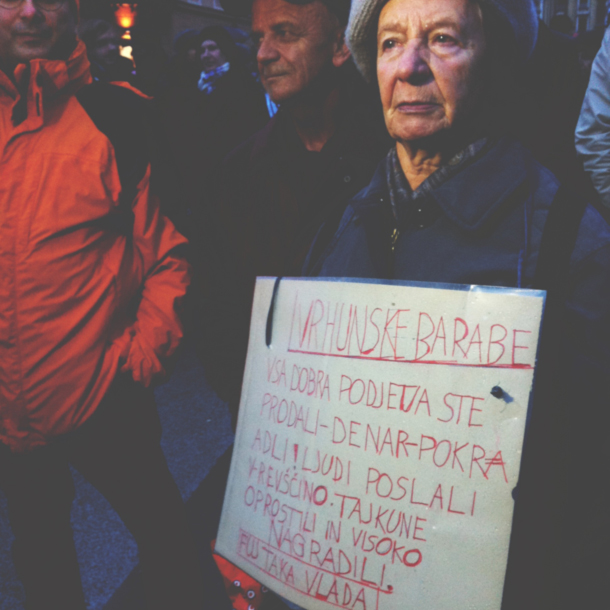 VRHUNSKE BARABE
VSA DOBRA PODJETJA STE
PRODALI-DENAR-POKRA
ADLI! LJUDI POSLALI
V-REVŠČINO. TAJKUNE
OPROSTILI IN VISOKO
NAGRADILI.
FUJ TAKA VLADA!